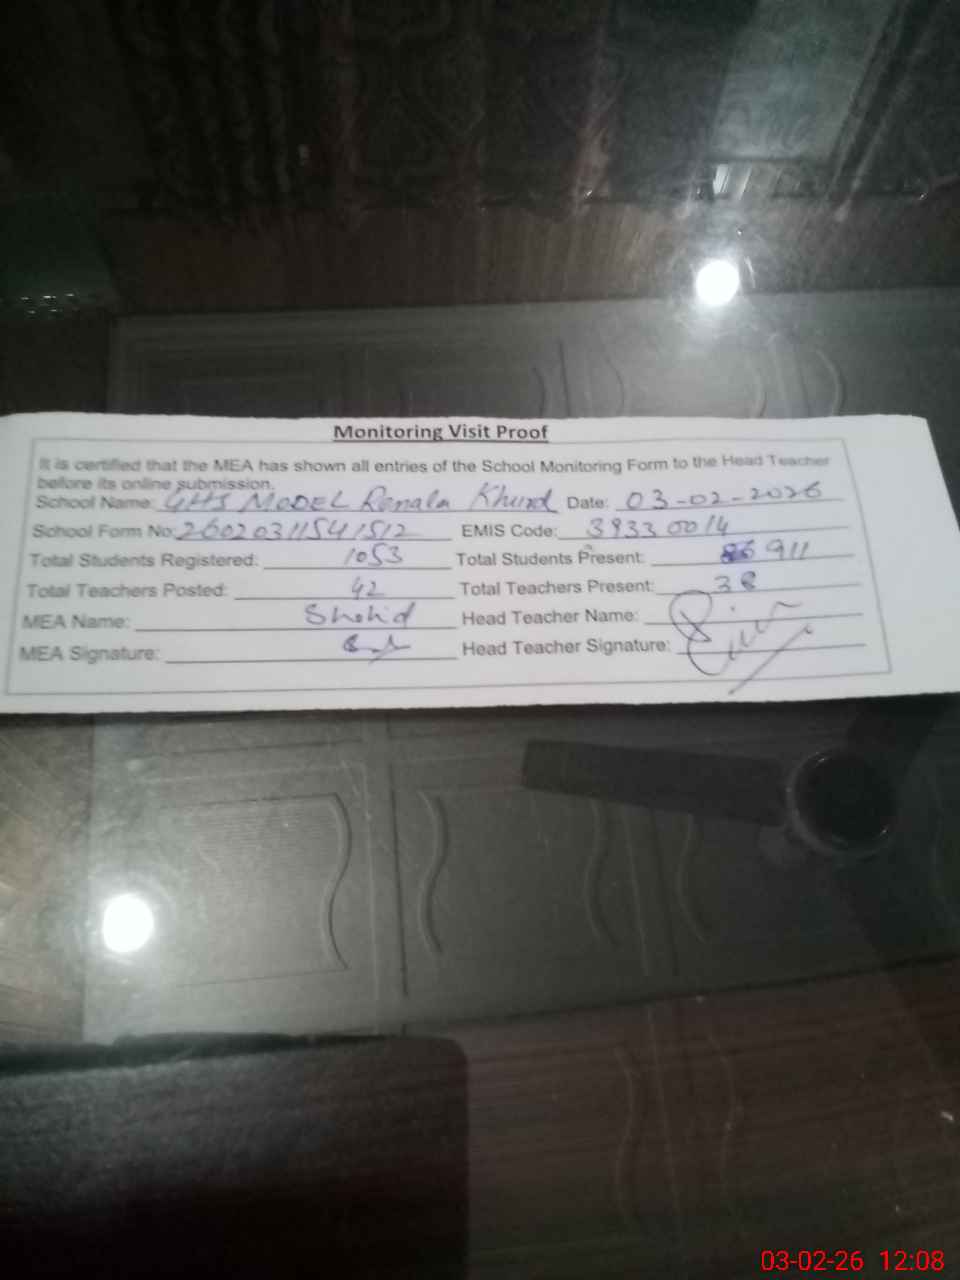 Monitoring Visit Proof
It is certified that the MEA has shown all entries of the School Monitoring Form to the Head Teacher
before its online submission.
School Name: GHS MODEL Renala Khurd Date: 03-02-2026
School Form No: 26020311541512 EMIS Code: 39330014
Total Students Registered: 1053 Total Students Present: 911
Total Teachers Posted: 42 Total Teachers Present: 38
MEA Name: Shahid Head Teacher Name:
MEA Signature: Head Teacher Signature:
03-02-26 12:08